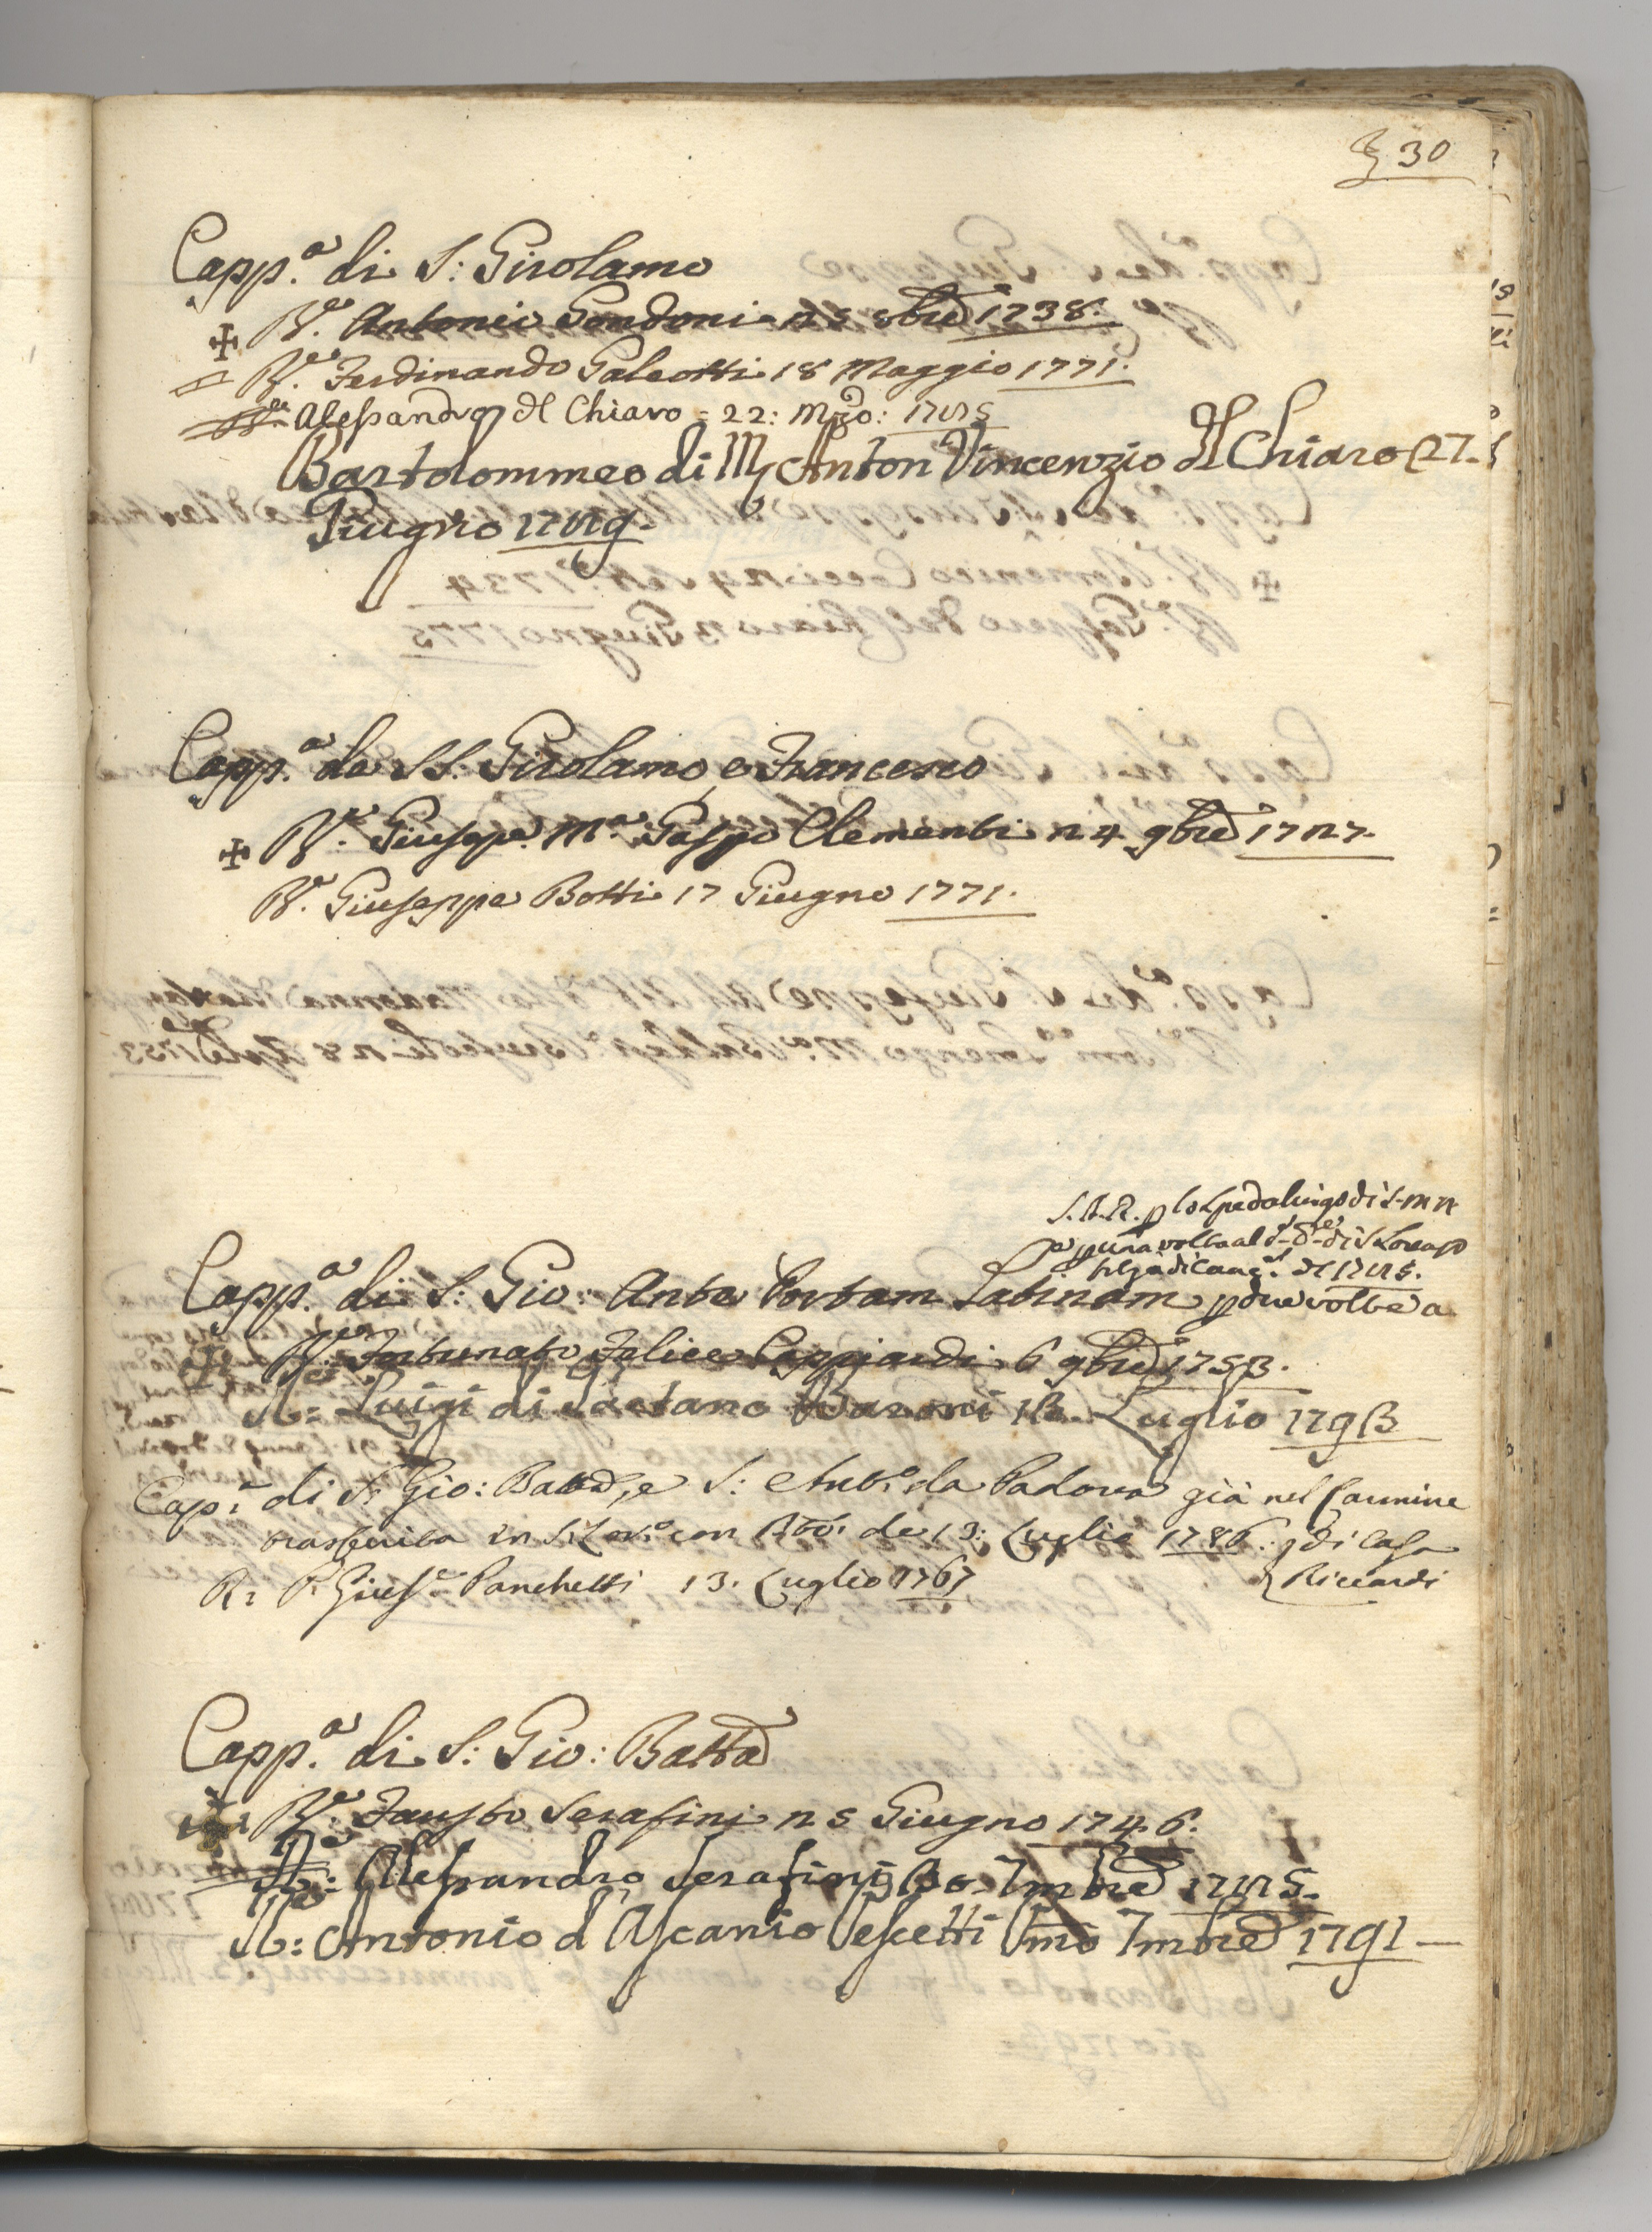 30
Capp.a di S: Girolamo
R.do Antonio Gondoni 25 8bre 1738.
R.do Ferdinando Galeotti 18 Maggio 1771.
Alessandro del Chiaro = 22: Mzo: 1785
Bartolommeo di M Anton Vincenzio del Chiaro 27.
Giugno 1789.
Capp.a de SS. Girolamo e Francesco
R.do Giusep.e M.a Gasp.o Clementi 24 9bre 1727.
R.do Giuseppe Botti 17 Giugno 1771.
S.A.R. p lo Spedalingo di S. M N
p una volta al di S Lorenzo
del 1785.
Capp.a di S: Gio: Ante Portam Latinam p due volte a
R.do Fortunato Felice Cappiardi 6 9bre 1753.
R.do Luigi di Gaetano Baroni 13. Luglio 1793
Cap.a di S. Gio: Batta, e S: Ant.o da Padova già nel Carmine
trasferita in S. Lor.o con de 13: Luglio 1786. p di Casa
Riccardi
R: P. Gius.e Panchetti 13. Luglio 1767
Capp.a di S: Gio: Batta
R.do Fausto Serafini 25 Giugno 1746.
R.do Alessandro Serafini 30. 7mbre 1785.
R.do Antonio d'Ascanio Vescetti Pmo 7mbre 1791